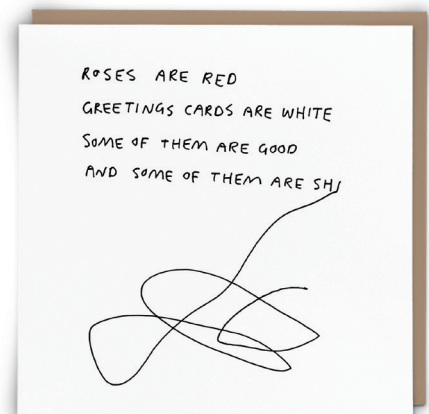 ROSES ARE RED
GREETINGS CARDS ARE WHITE
SOME OF THEM ARE GOOD
AND SOME OF THEM ARE SH